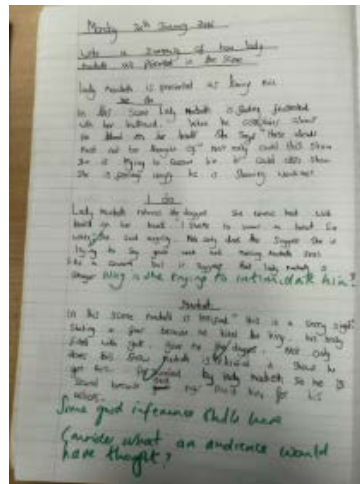 Monday 20th January
Write a summary of how lady
macbeth is presented in the scene
Lady Macbeth is presented as being evil
In this scene Lady Macbeth is feeling frustrated
with her husband. When he complains about
the blood on his hands she says "these deeds
must not be thought of" Not only could this show
she is trying to him it could also show
she is feeling angry he is showing weakness
I do
Lady Macbeth returns the daggers She comes back with
blood on her hands "I shame to wear a heart so
white" she said angrily. Not only does this suggest she is
trying to making macbeth
like a coward but it suggests that lady macbeth is
stronger Why is she trying to intimidate him?
Macbeth
In this scene macbeth is "this is a sorry sight"
because he killed the king. his body
filled with guilt. gave me the daggers. Not only
does this show macbeth is show he
got by lady macbeth so he is
scared because for his
actions.
Some good inference skills here
Consider what an audience would
have thought?